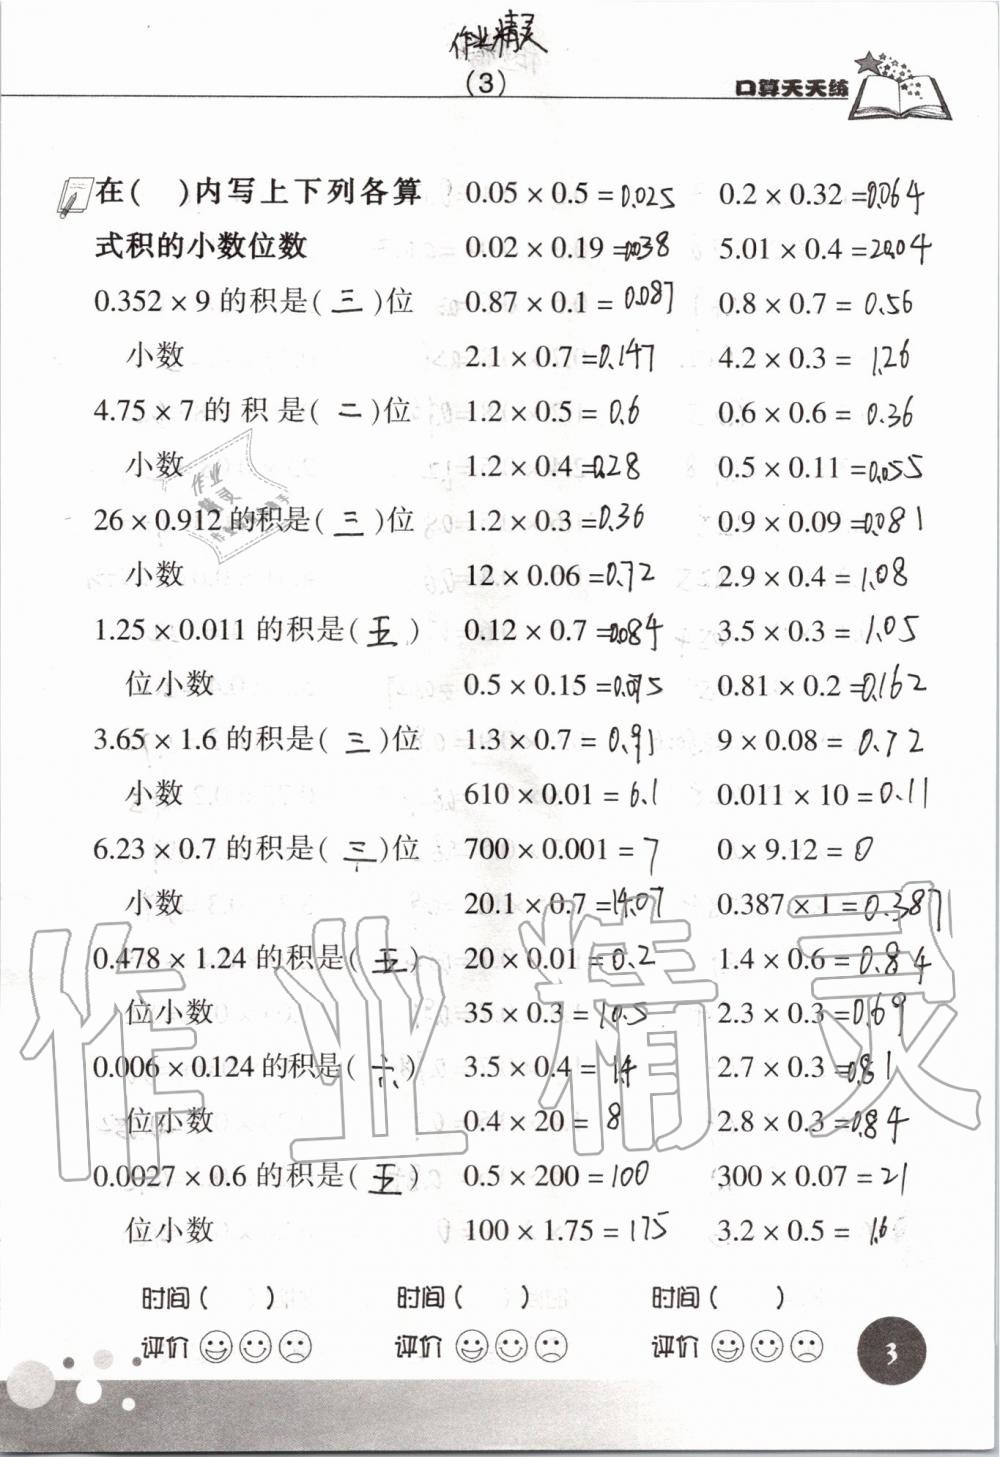 作业精灵
(3)
口算天天练
在( )内写上下列各算
式积的小数位数
0.352 × 9 的积是( 三 )位
小数
4.75 × 7 的积是( 二 )位
小数
26 × 0.912 的积是( 三 )位
小数
1.25 × 0.011 的积是( 五 )
位小数
3.65 × 1.6 的积是( 三 )位
小数
6.23 × 0.7 的积是( 三 )位
小数
0.478 × 1.24 的积是( 五 )
位小数
0.006 × 0.124 的积是( 六 )
位小数
0.0027 × 0.6 的积是( 五 )
位小数
0.05 × 0.5 = 0.025
0.02 × 0.19 = 0.038
0.87 × 0.1 = 0.087
2.1 × 0.7 = 0.147
1.2 × 0.5 = 0.6
1.2 × 0.4 = 0.28
1.2 × 0.3 = 0.36
12 × 0.06 = 0.72
0.12 × 0.7 = 0.084
0.5 × 0.15 = 0.075
1.3 × 0.7 = 0.91
610 × 0.01 = 6.1
700 × 0.001 = 7
20.1 × 0.7 = 14.07
20 × 0.01 = 0.2
35 × 0.3 = 10.5
3.5 × 0.4 = 1.4
0.4 × 20 = 8
0.5 × 200 = 100
100 × 1.75 = 175
0.2 × 0.32 = 0.064
5.01 × 0.4 = 2.004
0.8 × 0.7 = 0.56
4.2 × 0.3 = 1.26
0.6 × 0.6 = 0.36
0.5 × 0.11 = 0.055
0.9 × 0.09 = 0.081
2.9 × 0.4 = 1.08
3.5 × 0.3 = 1.05
0.81 × 0.2 = 0.162
9 × 0.08 = 0.72
0.011 × 10 = 0.11
0 × 9.12 = 0
0.387 × 1 = 0.387
1.4 × 0.6 = 0.84
2.3 × 0.3 = 0.69
2.7 × 0.3 = 0.81
2.8 × 0.3 = 0.84
300 × 0.07 = 21
3.2 × 0.5 = 1.6
时间( ) 时间( ) 时间( )
评价 评价 评价
3
作业精灵